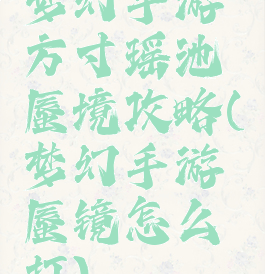 梦幻手游
方寸瑶池
蜃境攻略(
梦幻手游
蜃镜怎么
打)